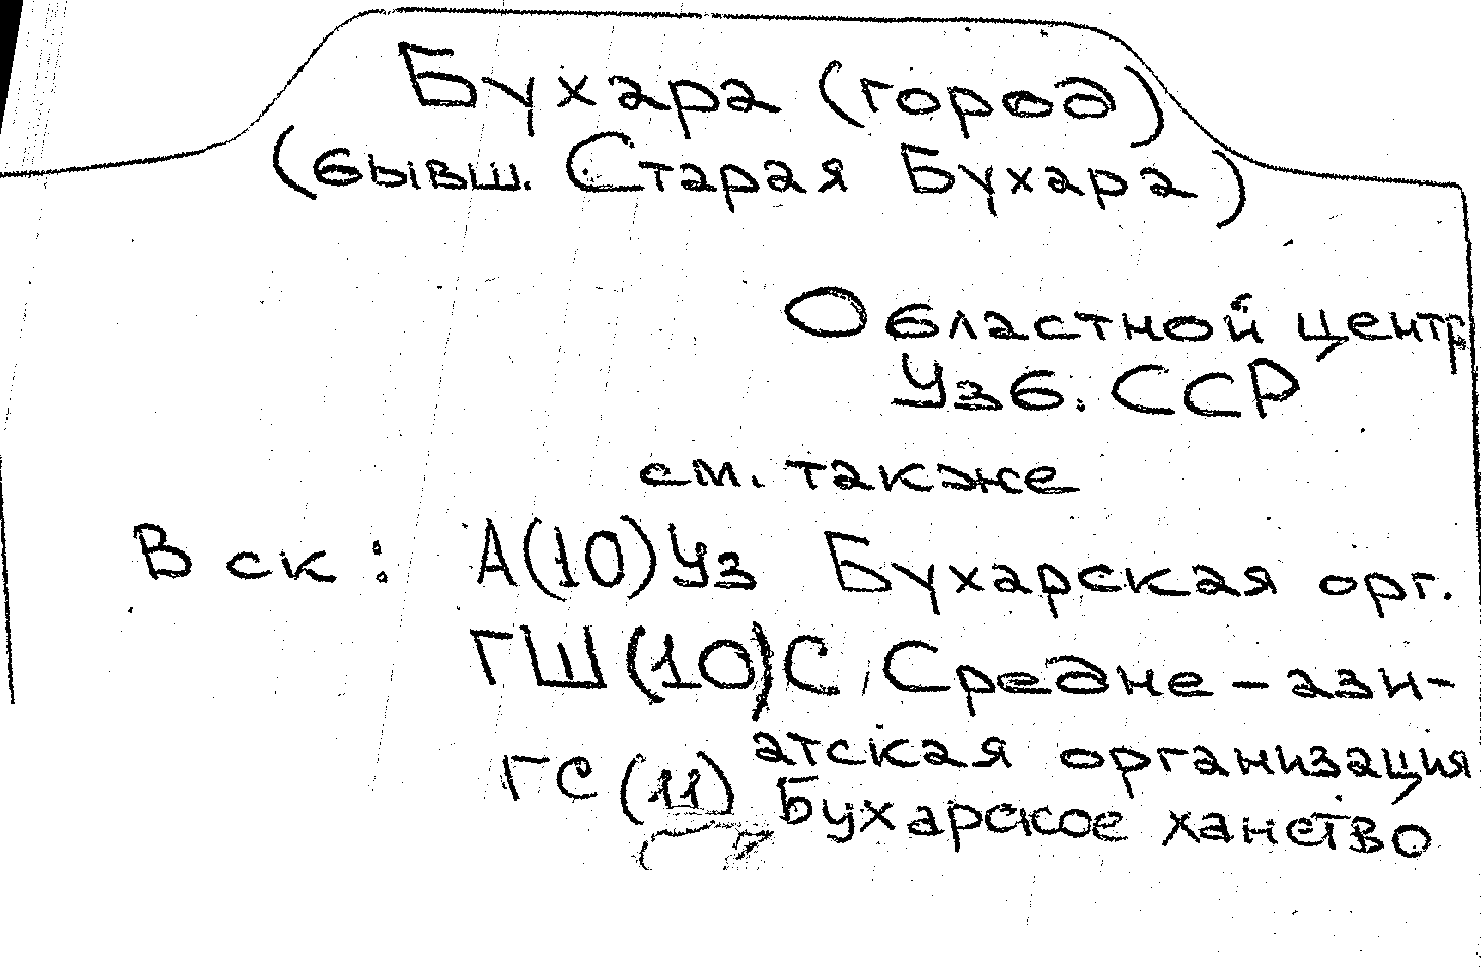 Бухара (город)
(бывш. Старая Бухара)
Областной центр
Узб. ССР
см. также
В ск: А(10)Уз Бухарская орг.
ГШ(10)С Средне-ази-
атская организация
ГС(11) Бухарское ханство